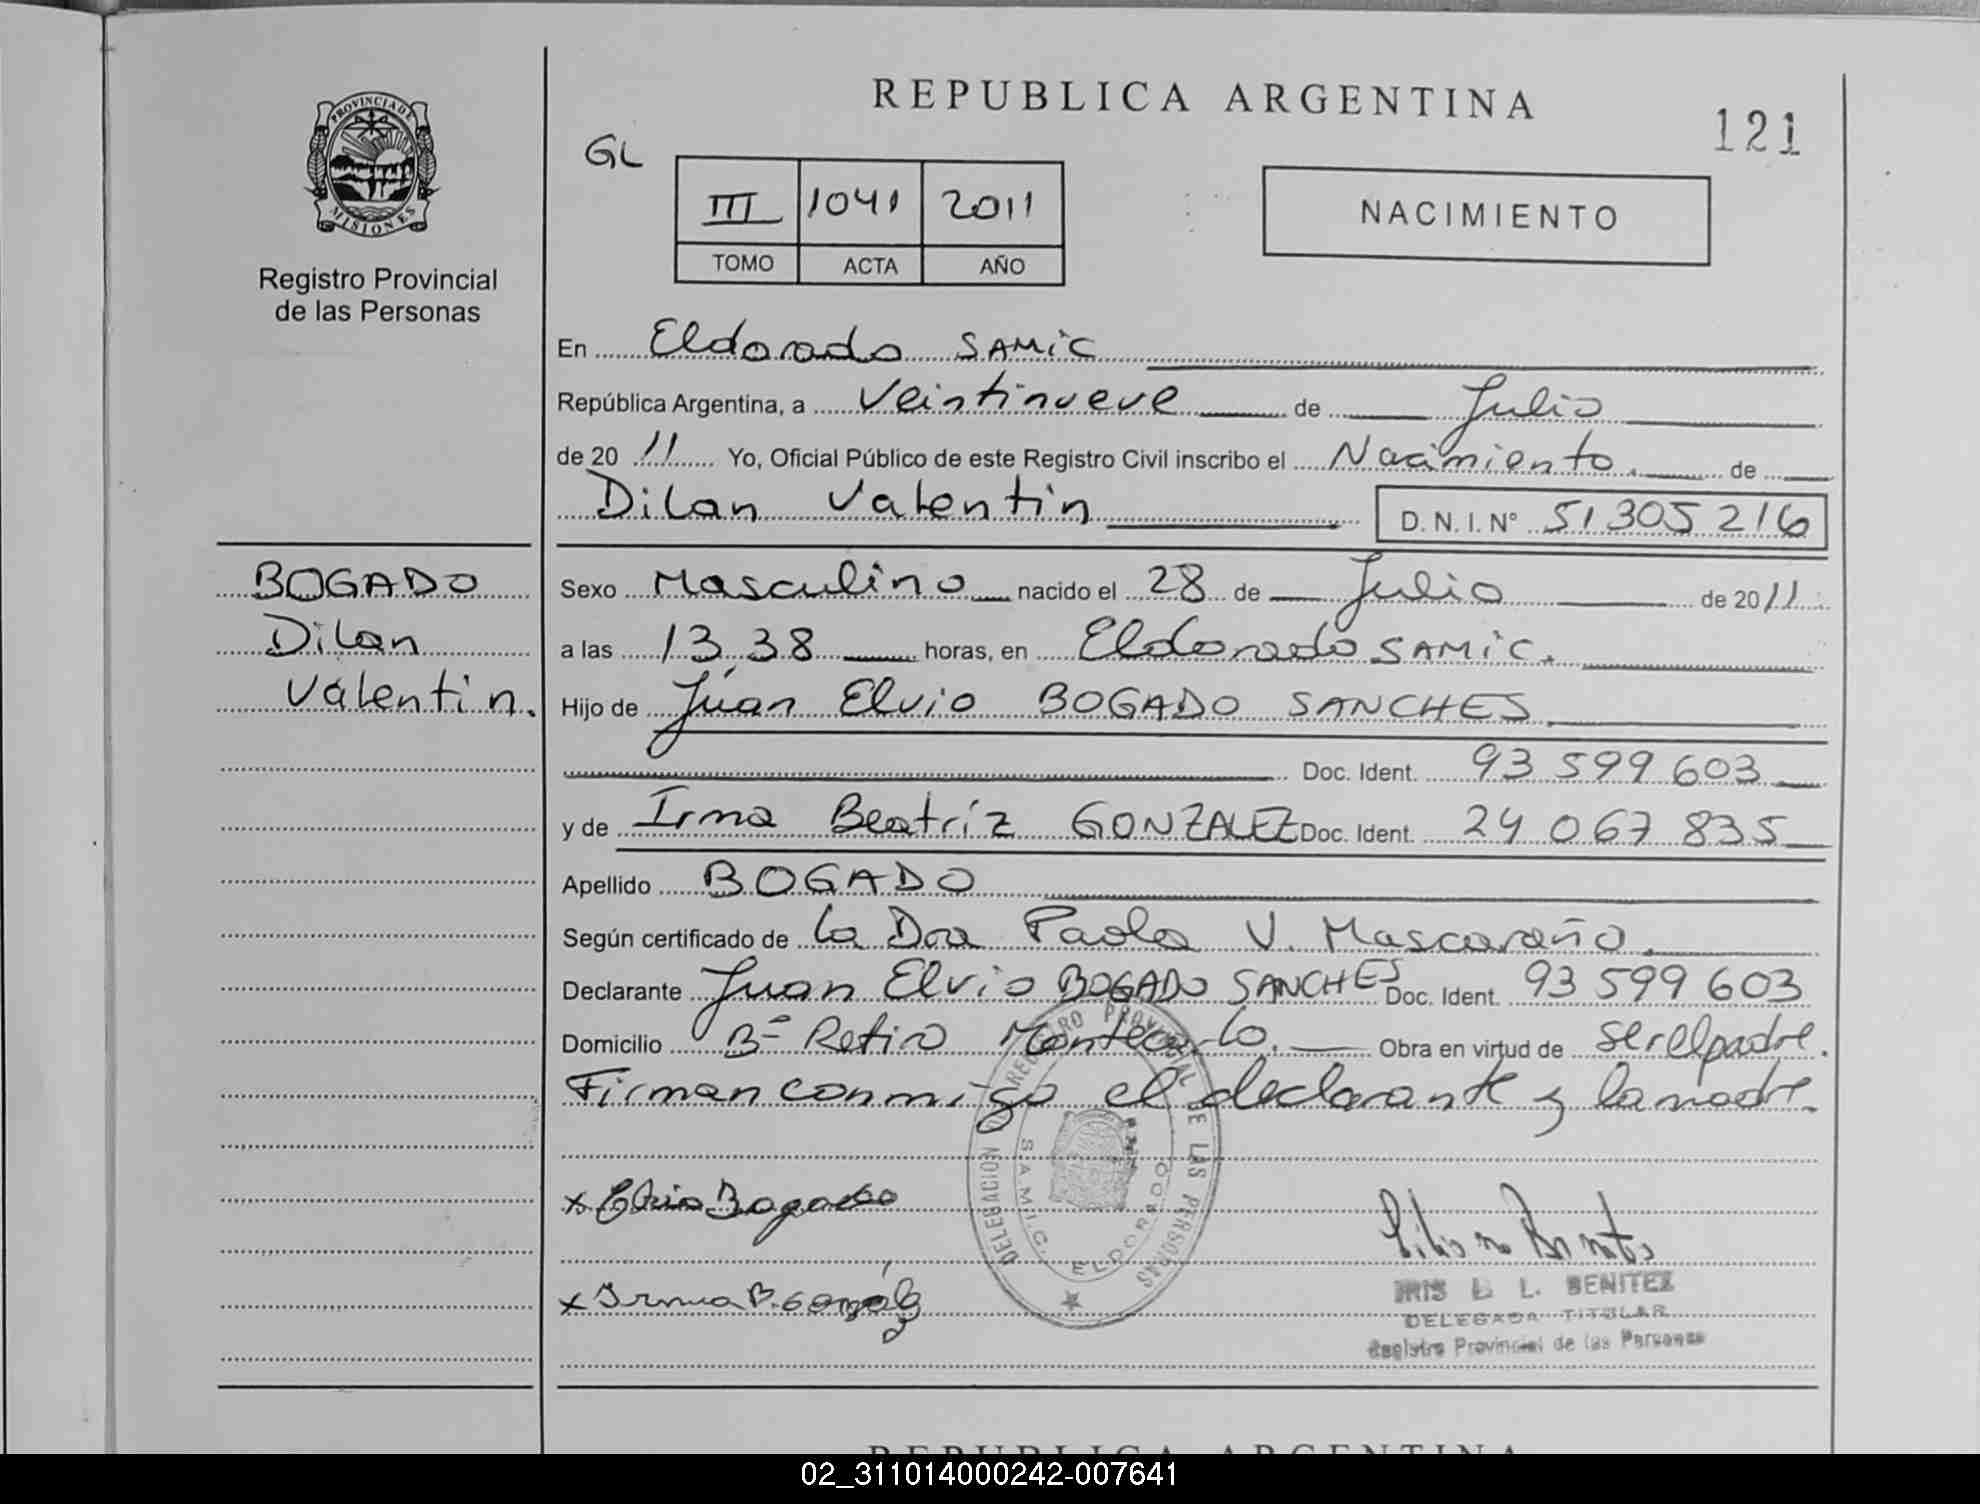 REPUBLICA ARGENTINA
121
GL
PROVINCIA DE MISIONES
III 1041 2011
TOMO ACTA AÑO
NACIMIENTO
Registro Provincial
de las Personas
En Eldorado SAMiC
República Argentina, a Veintinueve de Julio
de 2011 Yo, Oficial Público de este Registro Civil inscribo el Nacimiento. de
Dilan Valentin D.N.I.Nº 51305216
BOGADO
Dilan
Valentin.
Sexo Masculino nacido el 28 de Julio de 2011
a las 13,38 horas, en Eldorado SAMiC.
Hijo de Juan Elvio BOGADO SANCHES
Doc. Ident. 93 599 603
y de Irma Beatriz GONZALEZ Doc. Ident. 24 067 835
Apellido BOGADO
Según certificado de la Dra Paola V. Mascaraño.
Declarante Juan Elvio BOGADO SANCHES Doc. Ident. 93 599 603
Domicilio Bº Retiro Montecarlo. Obra en virtud de ser el padre.
Firman conmigo el declarante y la madre.
DELEGACION REGISTRO PROVINCIAL DE LAS PERSONAS
S.A.M.I.C. ELDORADO
x Elvio Bogado
x Irma B. Gonzálz
IRIS L. BENITEZ
DELEGADA TITULAR
Registro Provincial de las Personas
REPUBLICA ARGENTINA
02_311014000242-007641